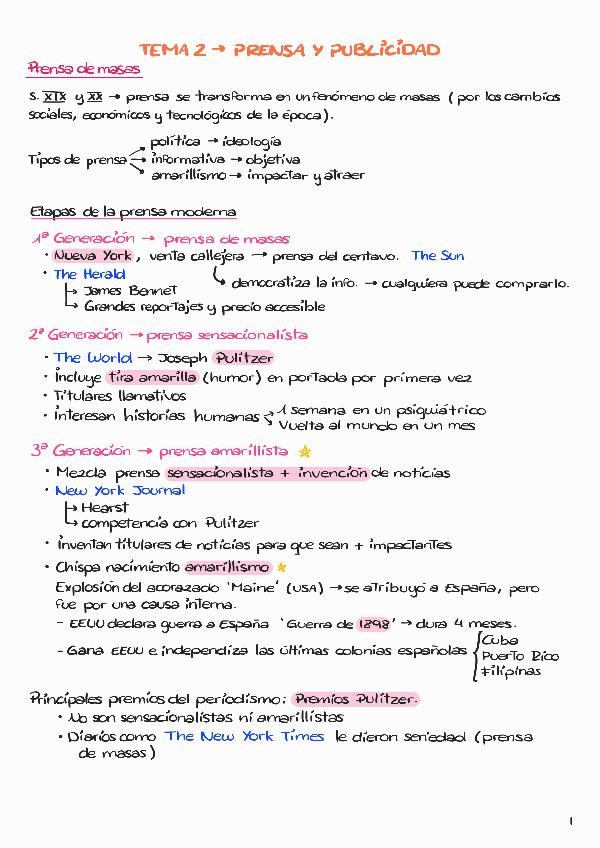 TEMA 2 → PRENSA Y PUBLICIDAD
Prensa de masas
S. XIX y XX → prensa se transforma en un fenómeno de masas (por los cambios
sociales, económicos y tecnológicos de la época).
política → ideología
Tipos de prensa → informativa → objetiva
amarillismo → impactar y atraer
Etapas de la prensa moderna
1ª Generación → prensa de masas
• Nueva York, venta callejera → prensa del centavo. The Sun
• The Herald
democratiza la info. → cualquiera puede comprarlo.
↳ James Bennet
↳ Grandes reportajes y precio accesible
2ª Generación → prensa sensacionalista
• The World → Joseph Pulitzer
• Incluye tira amarilla (humor) en portada por primera vez
• Titulares llamativos
• Interesan historias humanas
1 semana en un psiquiátrico
Vuelta al mundo en un mes
3ª Generación → prensa amarillista
• Mezcla prensa sensacionalista + invención de noticias
• New York Journal
↳ Hearst
↳ competencia con Pulitzer
• Inventan titulares de noticias para que sean + impactantes
• Chispa nacimiento amarillismo
Explosión del acorazado 'Maine' (USA) → se atribuyó a España, pero
fue por una causa interna.
- EEUU declara guerra a España 'Guerra de 1898' → dura 4 meses.
- Gana EEUU e independiza las últimas colonias españolas
Cuba
Puerto Rico
Filipinas
Principales premios del periodismo: Premios Pulitzer.
• No son sensacionalistas ni amarillistas
• Diarios como The New York Times le dieron seriedad (prensa
de masas)
1